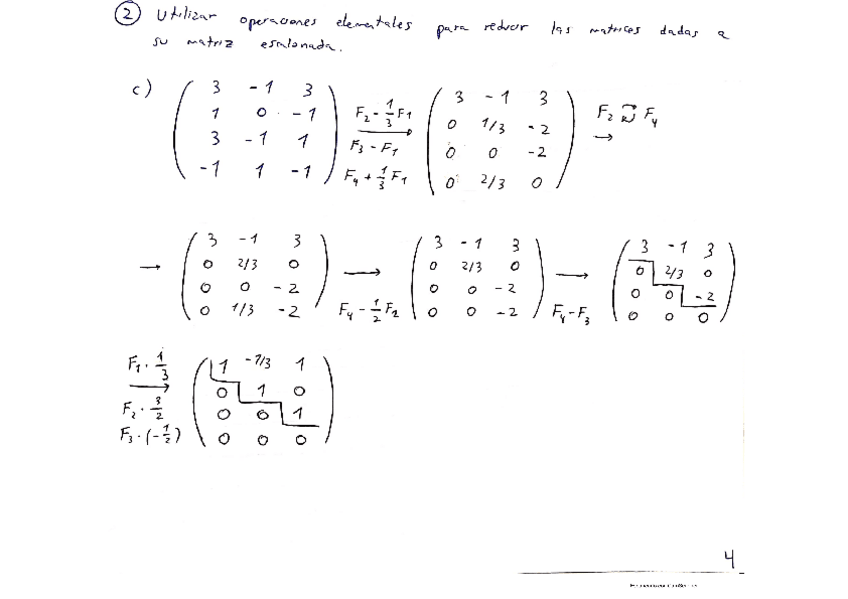 ② Utilizar operaciones elementales para reducir las matrices dadas a
su matriz escalonada.
c)
3 -1 3
1 0 -1
3 -1 1
-1 1 -1
F₂ - 1/3 F₁
F₃ - F₁
F₄ + 1/3 F₁
3 -1 3
0 1/3 -2
0 0 -2
0 2/3 0
F₂ ⇄ F₄
→
→
3 -1 3
0 2/3 0
0 0 -2
0 1/3 -2
→
F₄ - 1/2 F₂
3 -1 3
0 2/3 0
0 0 -2
0 0 -2
→
F₄ - F₃
3 -1 3
0 2/3 0
0 0 -2
0 0 0
F₁ · 1/3
→
F₂ · 3/2
F₃ · (-1/2)
1 -1/3 1
0 1 0
0 0 1
0 0 0
4